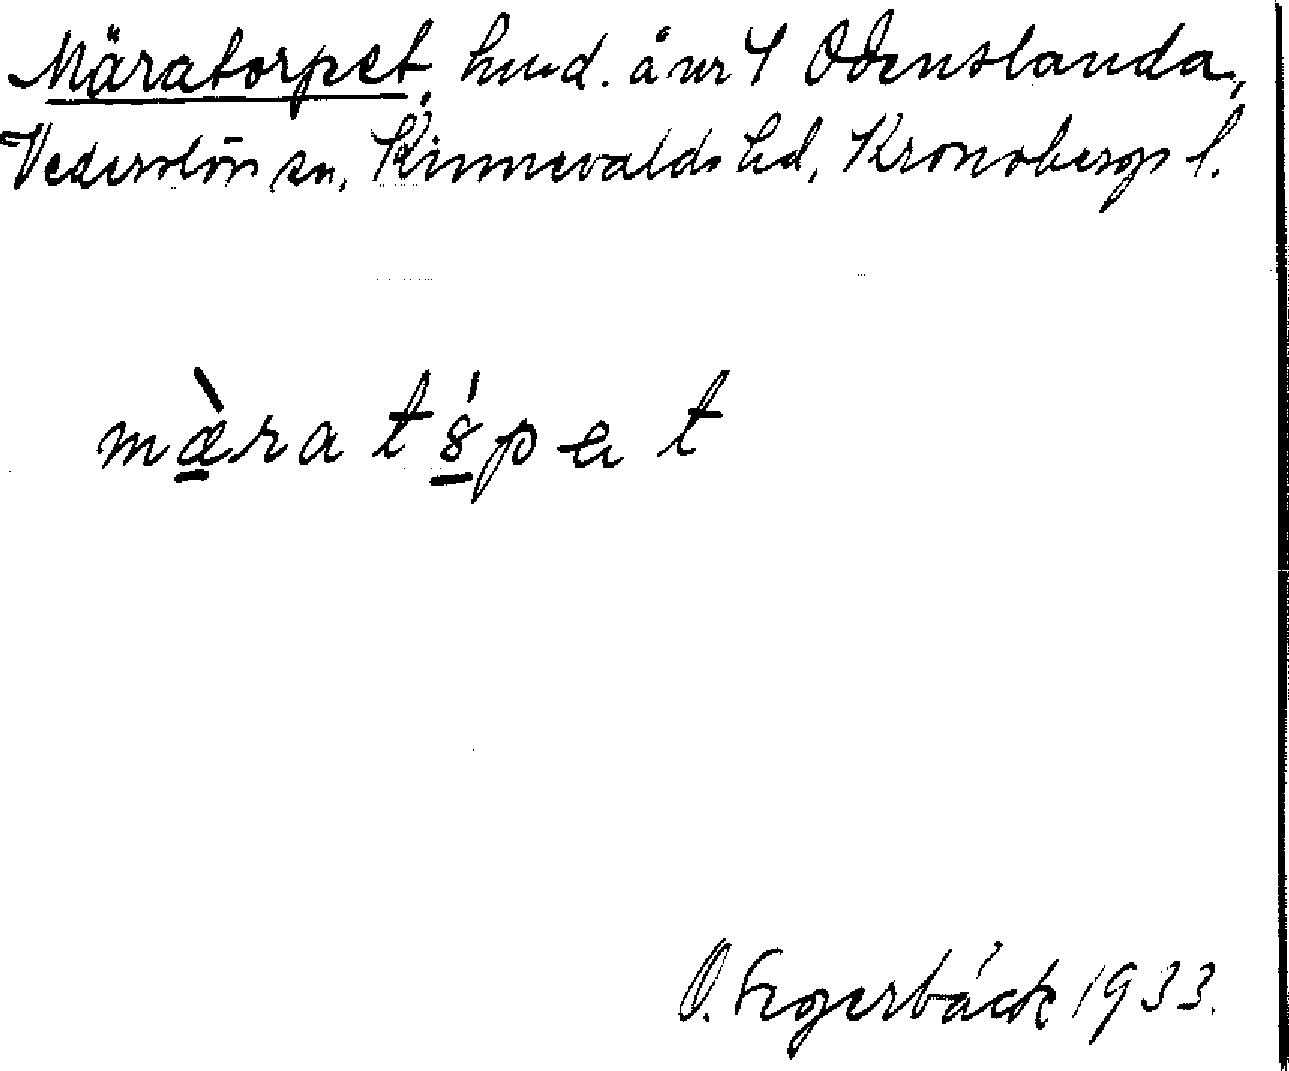 Märatorpet, hmd. å nr 4 Odenslanda,
Vederslöv sn, Kinnevalds hd, Kronobergs l.
mæ̀rat8́pet
O. Segerbäck 1933.